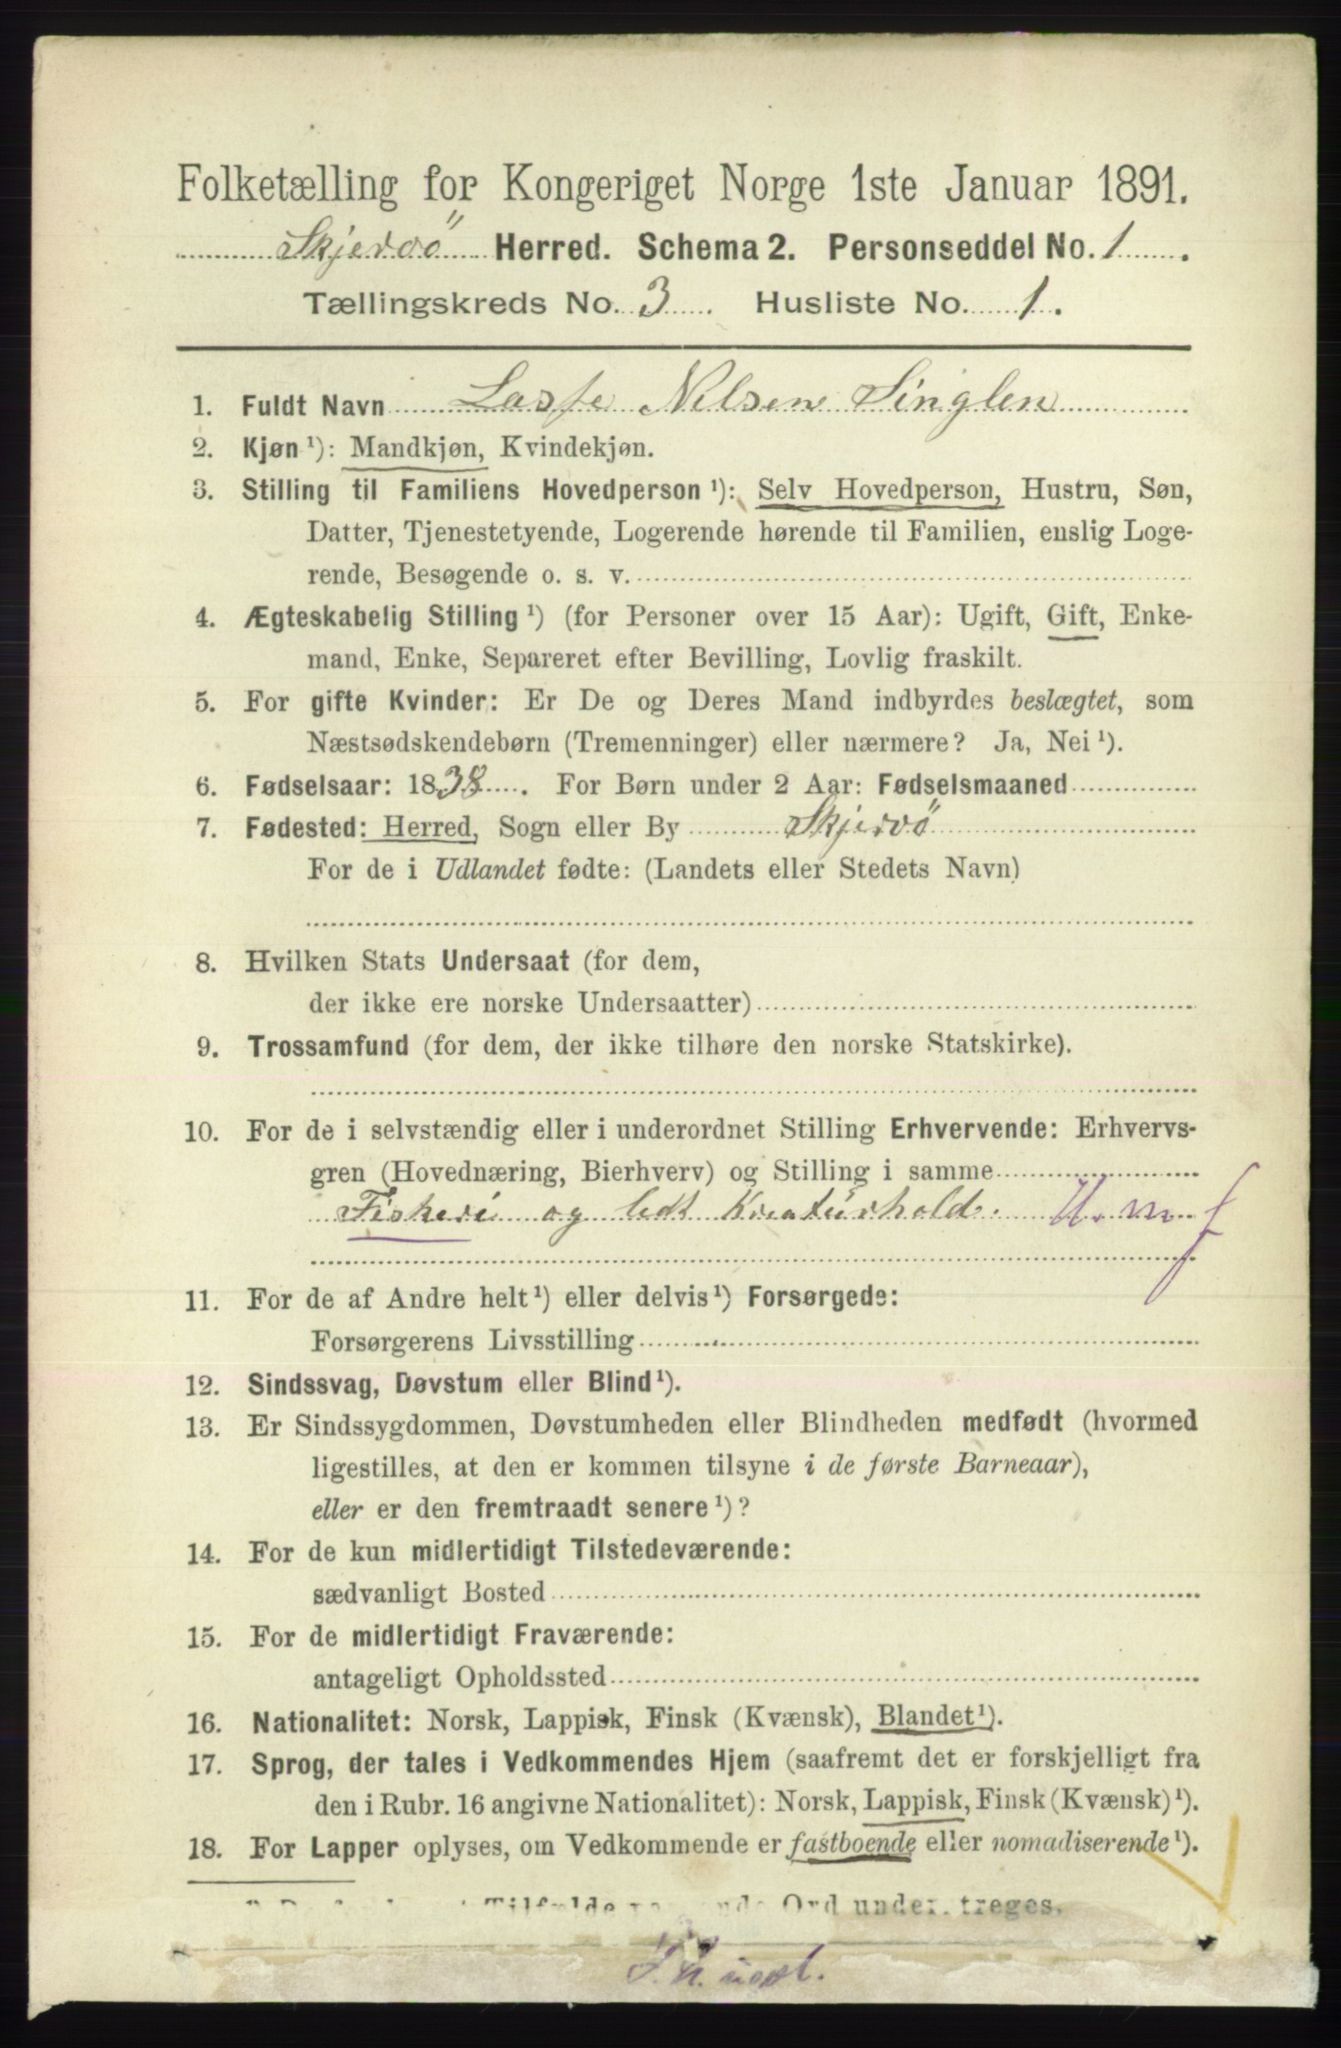 Folketælling for Kongeriget Norge 1ste Januar 1891.
Skjervö Herred. Schema 2. Personseddel No. 1.
Tællingskreds No. 3. Husliste No. 1.
1. Fuldt Navn Lasse Nilsen Singlen
2. Kjøn ¹): Mandkjøn, Kvindekjøn.
3. Stilling til Familiens Hovedperson ¹): Selv Hovedperson, Hustru, Søn,
Datter, Tjenestetyende, Logerende hørende til Familien, enslig Loge-
rende, Besøgende o. s. v.
4. Ægteskabelig Stilling ¹) (for Personer over 15 Aar): Ugift, Gift, Enke-
mand, Enke, Separeret efter Bevilling, Lovlig fraskilt.
5. For gifte Kvinder: Er De og Deres Mand indbyrdes beslægtet, som
Næstsødskendebørn (Tremenninger) eller nærmere? Ja, Nei ¹).
6. Fødselsaar: 1838. For Børn under 2 Aar: Fødselsmaaned
7. Fødested: Herred, Sogn eller By Skjervö
For de i Udlandet fødte: (Landets eller Stedets Navn)
8. Hvilken Stats Undersaat (for dem,
der ikke ere norske Undersaatter)
9. Trossamfund (for dem, der ikke tilhøre den norske Statskirke).
10. For de i selvstændig eller i underordnet Stilling Erhvervende: Erhvervs-
gren (Hovednæring, Bierhverv) og Stilling i samme
Fiskeri og lidt Kreaturhold.
11. For de af Andre helt ¹) eller delvis ¹) Forsørgede:
Forsørgerens Livsstilling
12. Sindssvag, Døvstum eller Blind ¹).
13. Er Sindssygdommen, Døvstumheden eller Blindheden medfødt (hvormed
ligestilles, at den er kommen tilsyne i de første Barneaar),
eller er den fremtraadt senere ¹)?
14. For de kun midlertidigt Tilstedeværende:
sædvanligt Bosted
15. For de midlertidigt Fraværende:
antageligt Opholdssted
16. Nationalitet: Norsk, Lappisk, Finsk (Kvænsk), Blandet ¹).
17. Sprog, der tales i Vedkommendes Hjem (saafremt det er forskjelligt fra
den i Rubr. 16 angivne Nationalitet): Norsk, Lappisk, Finsk (Kvænsk) ¹).
18. For Lapper oplyses, om Vedkommende er fastboende eller nomadiserende ¹).
Tilfælde Ord understreges.